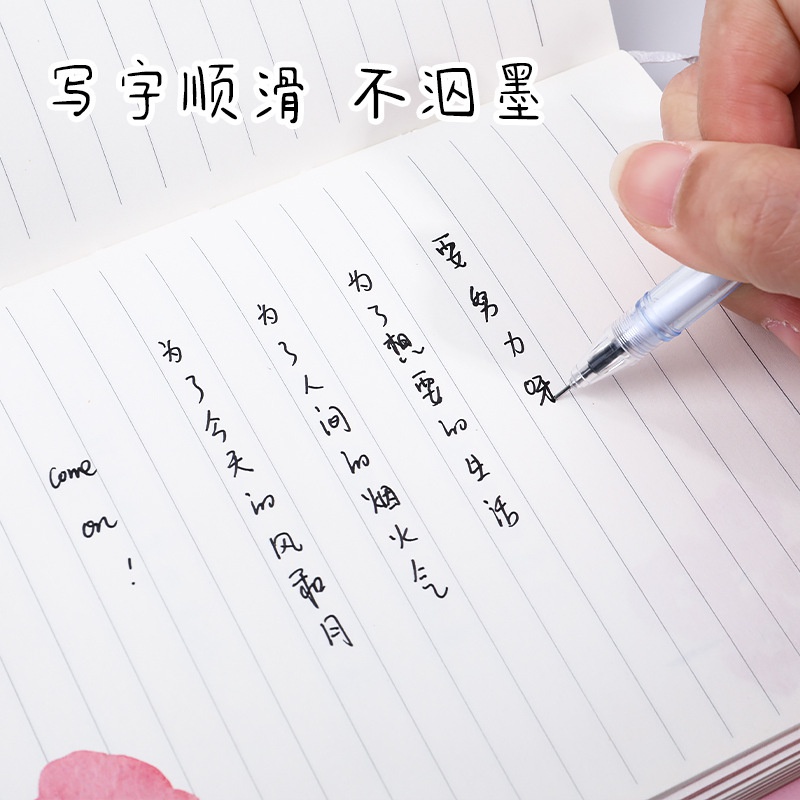 写字顺滑 不洇墨
要努力呀
为了想要的生活
为了人间的烟火气
为了今天的风和月
come
on
!